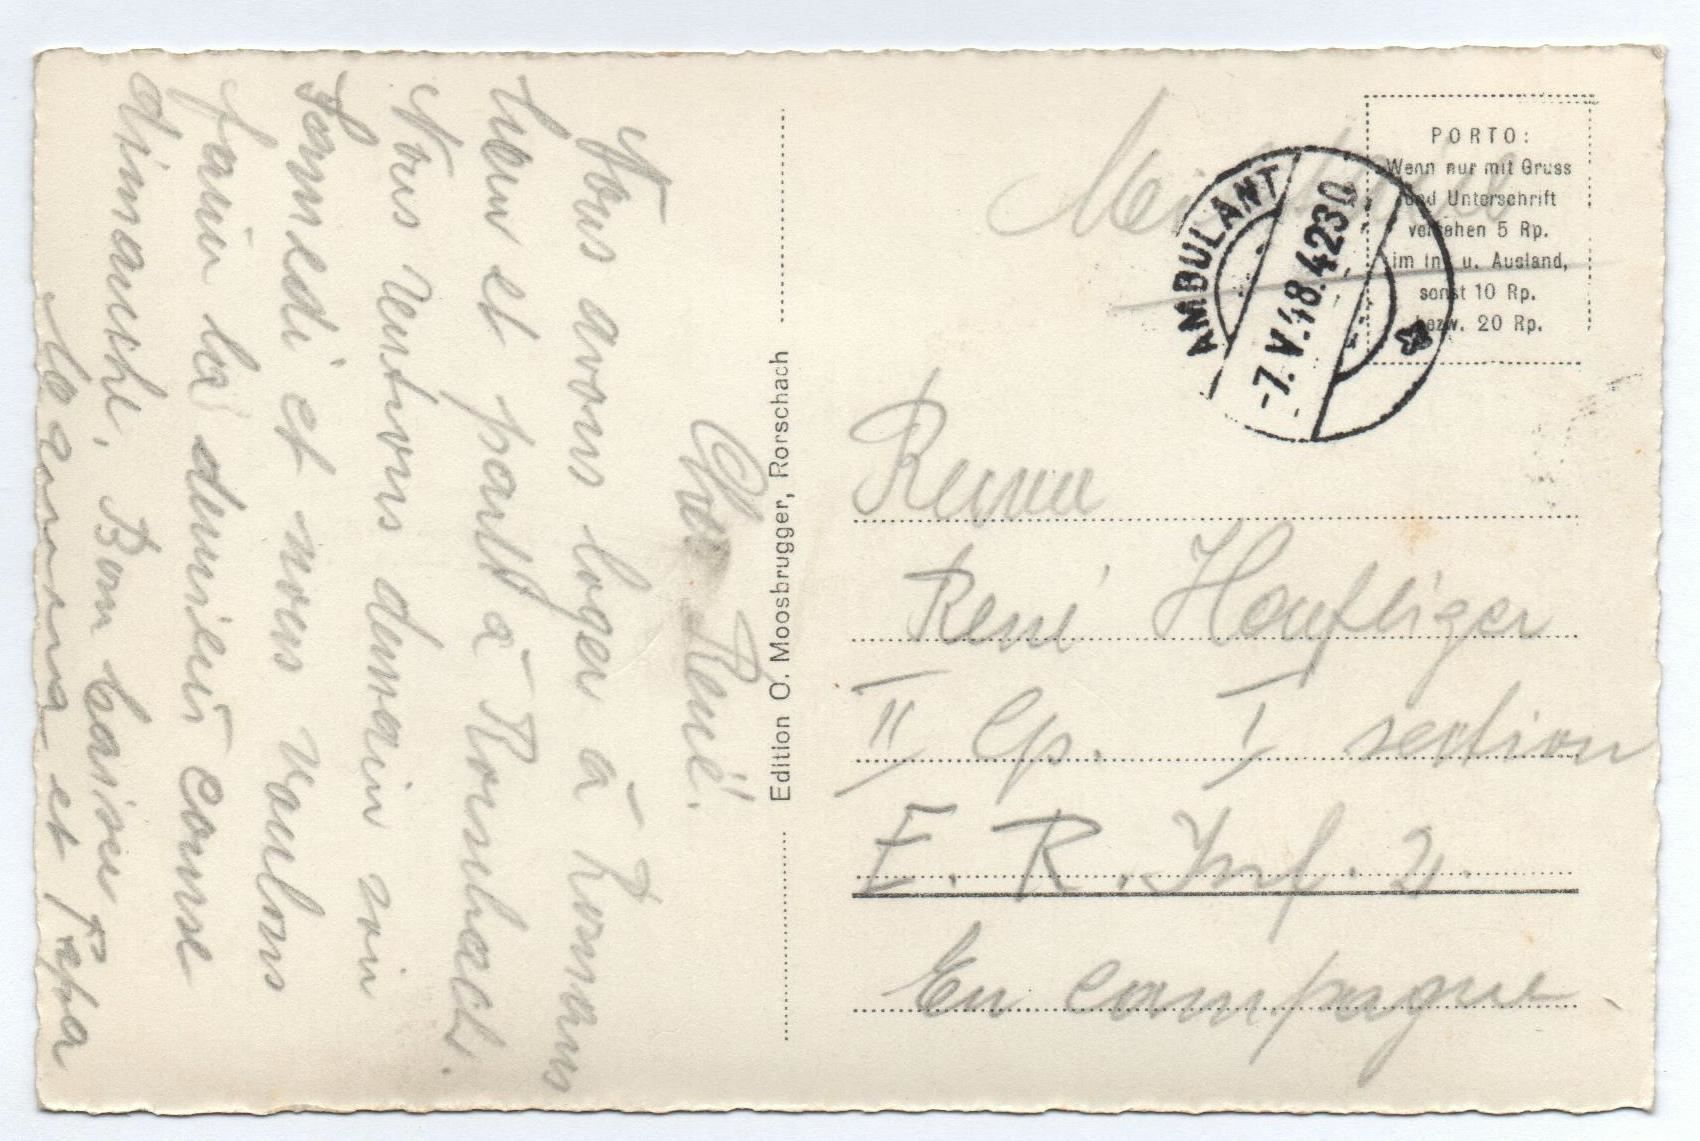 Cher René!
Nous avons loger à Romans
horn et parti à Rorschach.
Nous rentrons demain soir
samedi et nous voulons
faire la dernier course
dimanche. Bon baiser
Maman et Papa
Edition O. Moosbrugger, Rorschach
PORTO:
Wenn nur mit Gruss
und Unterschrift
versehen 5 Rp.
im In- u. Ausland,
sonst 10 Rp.
bezw. 20 Rp.
AMBULANT
-7.V.48.4230
Militaire
Recrue
René Haefliger
II Cp. I section
E. R. Inf. 2.
En campagne